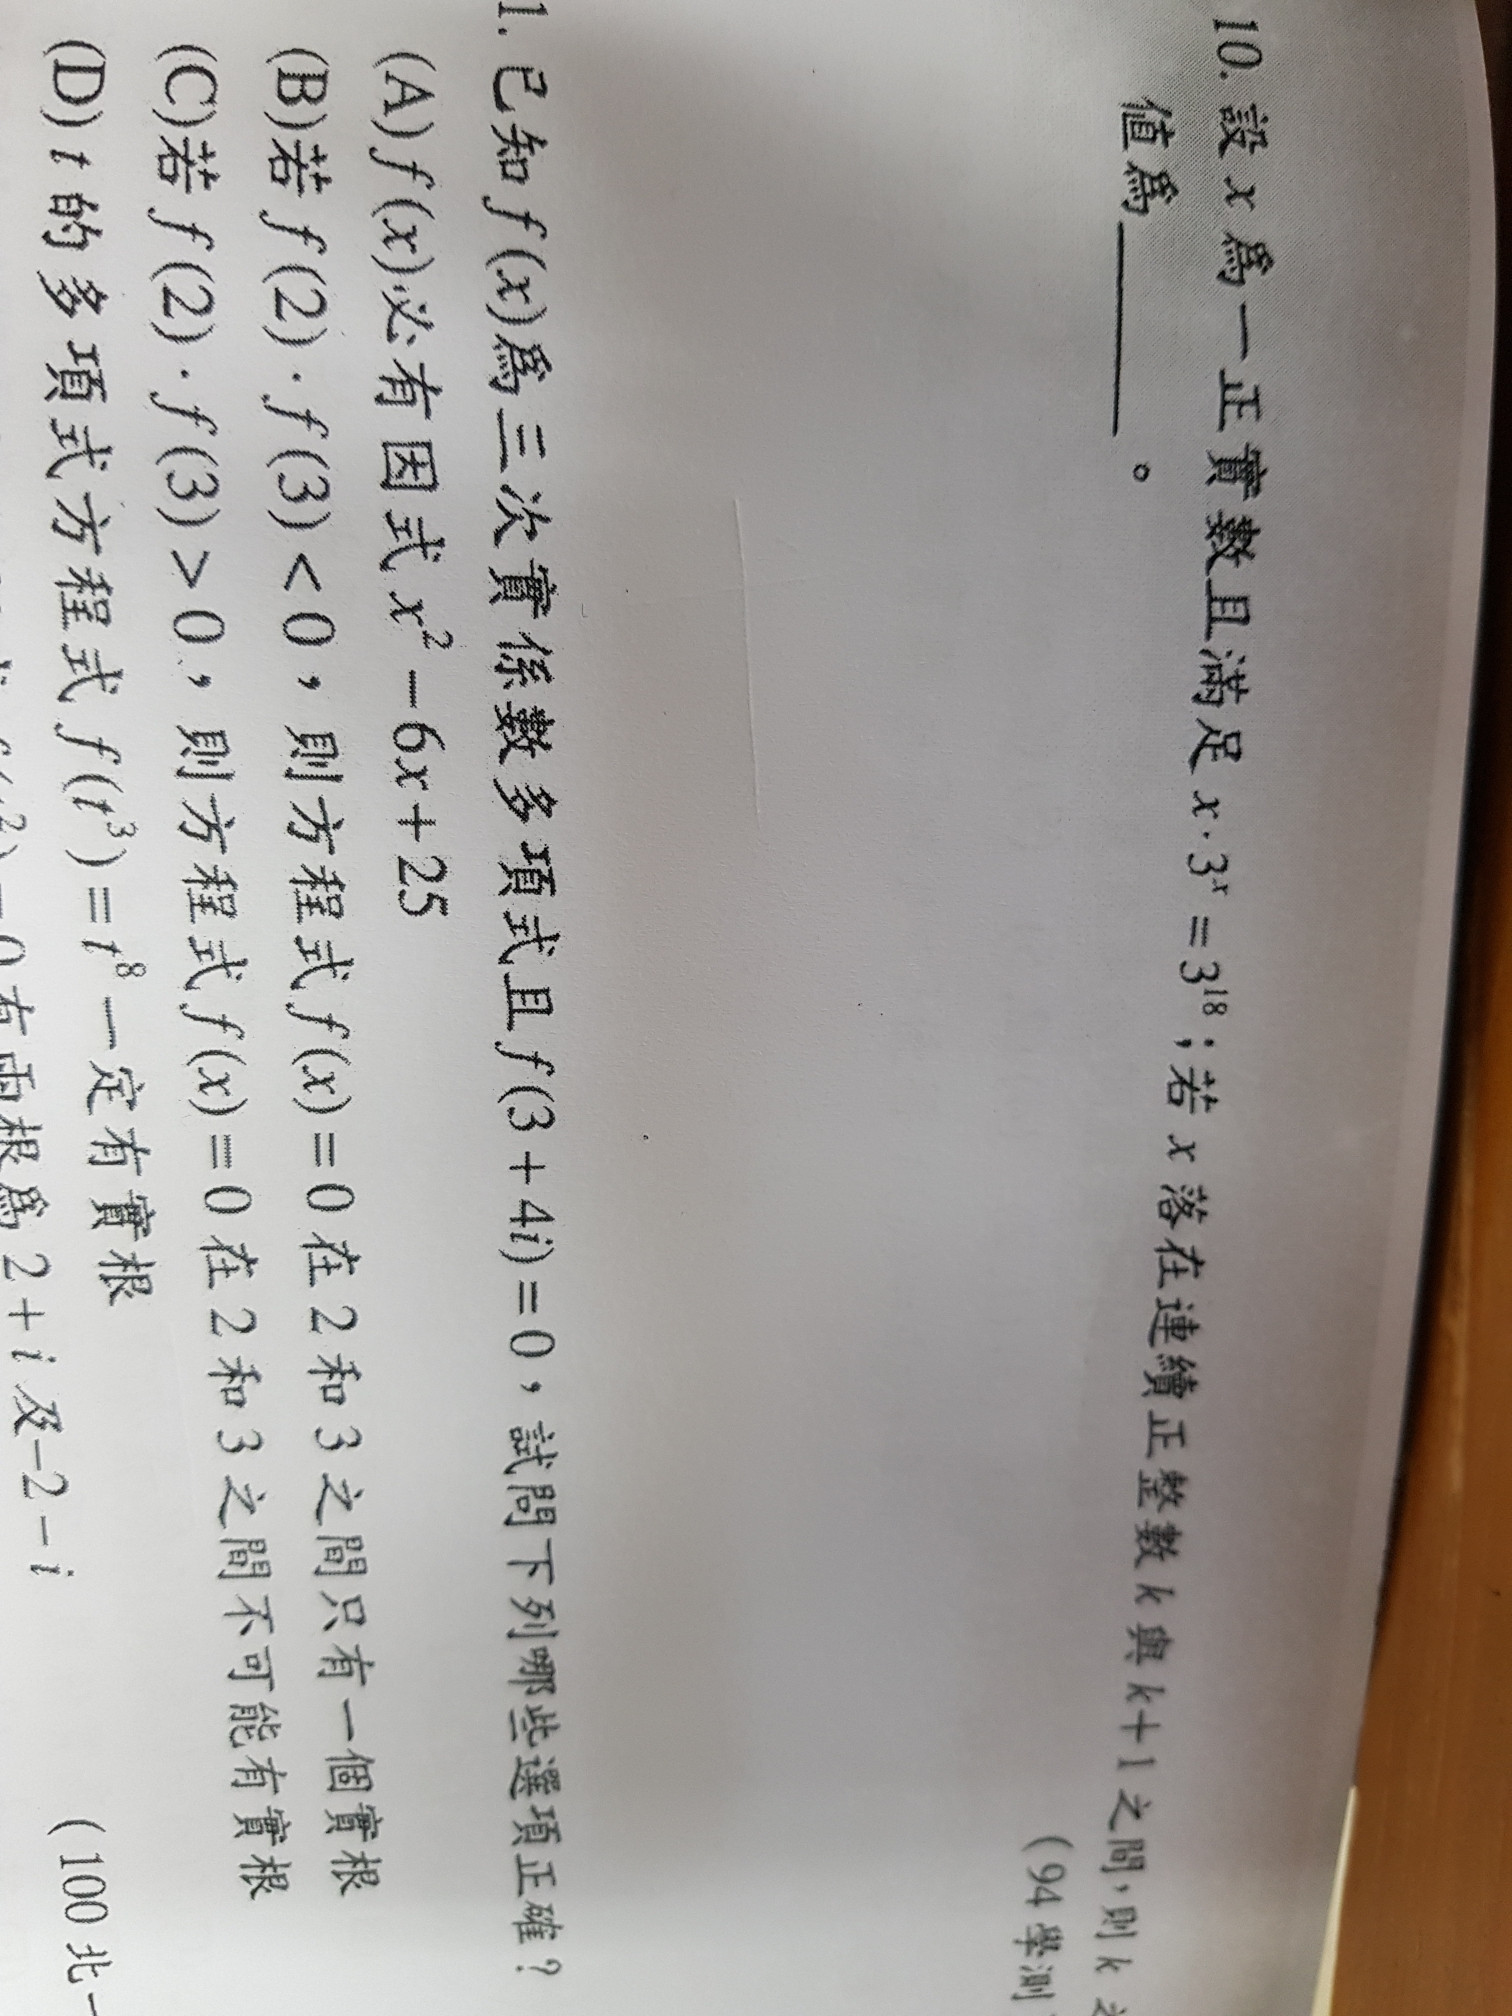 10. 設 x 為一正實數且滿足 x·3ˣ=3¹⁸；若 x 落在連續正整數 k 與 k+1 之間，則 k
值為________。
(94 學測
1. 已知 f(x)為三次實係數多項式且 f(3+4i)=0，試問下列哪些選項正確？
(A) f(x)必有因式 x²−6x+25
(B)若 f(2)·f(3)<0，則方程式 f(x)=0 在 2 和 3 之間只有一個實根
(C)若 f(2)·f(3)>0，則方程式 f(x)=0 在 2 和 3 之間不可能有實根
(D) t 的多項式方程式 f(t³)=t⁸ 一定有實根
=0 有兩根為 2+i 及−2−i
(100 北一